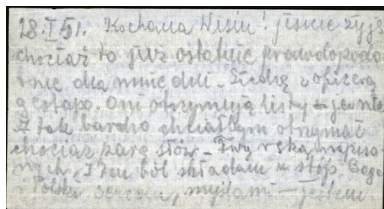 28. I 51. Kochana Wisiu! jeszcze żyję
chociaż to już ostatnie prawdopodo
bnie dla mnie dni. Siedzę z oficerą
gestapo. Oni otrzymują listy – ja nie
A tak bardzo chciałbym otrzymać
chociaż parę słów – Twą ręką napisa
nych. I ten ból składam u stóp Boga
Polsko sercem, myślami – jestem